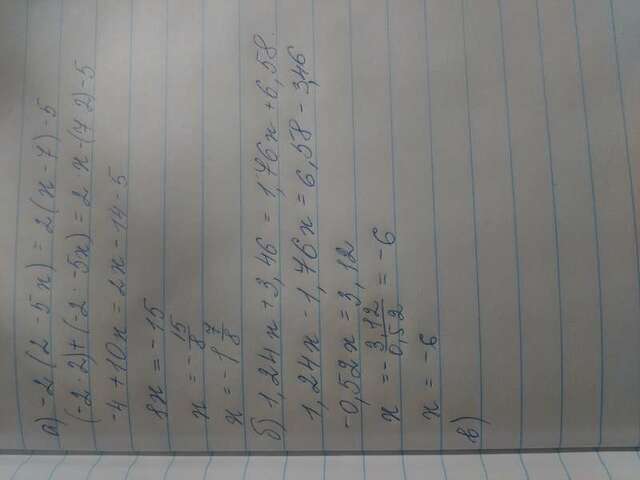 а) -2(2-5x) = 2(x-7)-5
(-2·2)+(-2·-5x) = 2x-(7 2)-5
-4+10x = 2x-14-5
8x = -15
x = -15/8
x = -1 7/8
б) 1,24x+3,46 = 1,76x+6,58.
1,24x-1,76x = 6,58-3,46
-0,52x = 3,12
x = -3,12/0,52 = -6
x = -6
в)